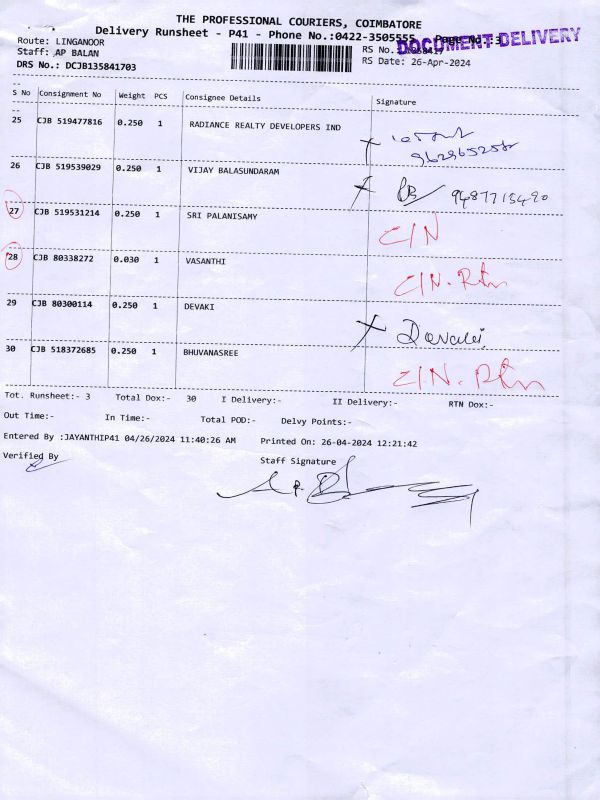 THE PROFESSIONAL COURIERS, COIMBATORE
Delivery Runsheet - P41 - Phone No.:0422-3505555 Page No.:3
DOCUMENT DELIVERY
Route: LINGANOOR
RS No.
Staff: AP BALAN
RS Date: 26-Apr-2024
DRS No.: DCJB135841703
S No Consignment No Weight PCS Consignee Details Signature
25 CJB 519477816 0.250 1 RADIANCE REALTY DEVELOPERS IND
26 CJB 519539029 0.250 1 VIJAY BALASUNDARAM 9487715490
27 CJB 519531214 0.250 1 SRI PALANISAMY C/N
28 CJB 80338272 0.030 1 VASANTHI C/N. Rtn
29 CJB 80300114 0.250 1 DEVAKI Devaki
30 CJB 518372685 0.250 1 BHUVANASREE C/N. Rtn
Tot. Runsheet:- 3 Total Dox:- 30 I Delivery:- II Delivery:- RTN Dox:-
Out Time:- In Time:- Total POD:- Delvy Points:-
Entered By :JAYANTHIP41 04/26/2024 11:40:26 AM Printed On: 26-04-2024 12:21:42
Verified By Staff Signature